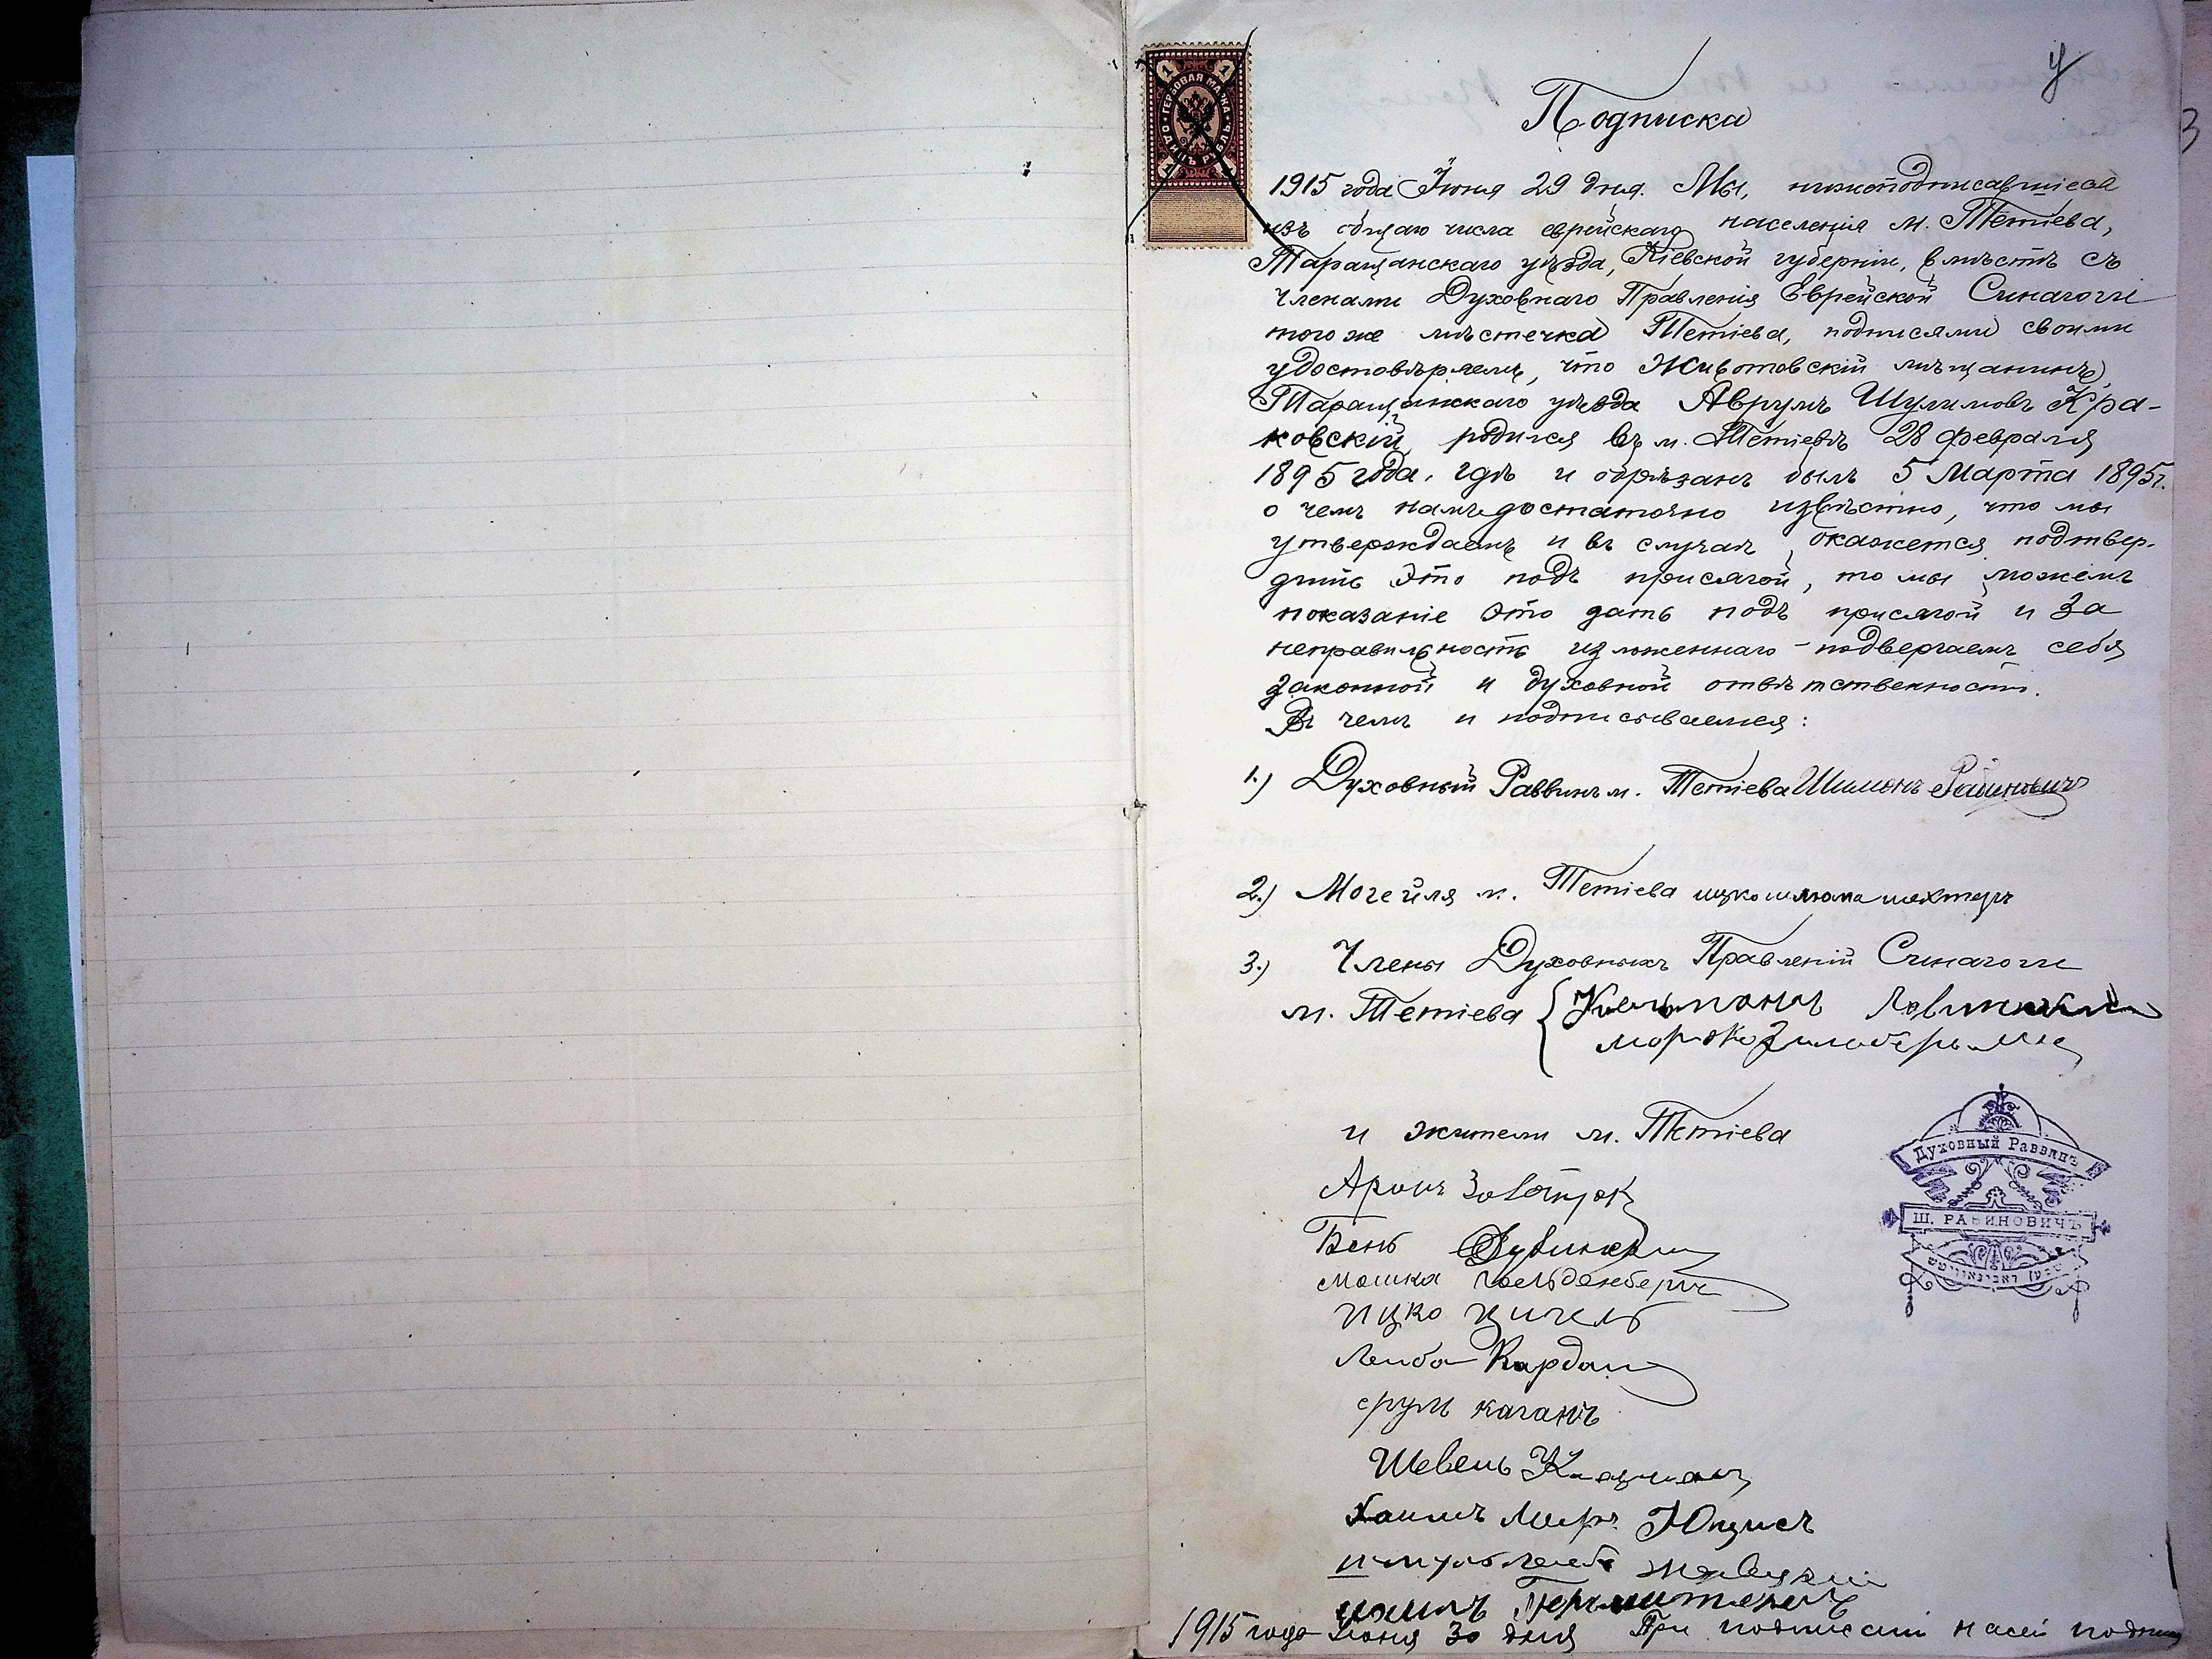 ГЕРБОВАЯ МАРКА
ОДИНЪ РУБЛЬ
1 1
3
Подписка
1915 года Iюня 29 дня. Мы, нижеподписавшiеся
изъ общаго числа еврейскаго населенiя м. Тетiева,
Таращанскаго уѣзда, Кiевской губернiи, вмѣстѣ съ
членами Духовнаго Правленiя Еврейской Синагоги
того же мѣстечка Тетiева, подписями своими
удостовѣряемъ, что Животовскiй мѣщанинъ
Таращанскаго уѣзда Аврумъ Шулимовъ Кра-
ковскiй родился въ м. Тетiевѣ 28 февраля
1895 года, гдѣ и обрѣзанъ былъ 5 Марта 1895г.
о чемъ намъ достаточно извѣстно, что мы
утверждаемъ и въ случаѣ, окажется подтвер-
дить это подъ присягой, то мы можемъ
показанiе это дать подъ присягой и за
неправильность изложеннаго - подвергаемъ себя
законной и духовной отвѣтственности.
Въ чемъ и подписываемся:
1.) Духовный Раввинъ м. Тетiева Шимонъ Рабиновичъ
2.) Могейля м. Тетiева ицко шлюма шехтеръ
3.) Члены Духовныхъ Правленiй Синагоги
м. Тетiева
и жители м. Тетiева
Духовный Раввинъ
Ш. РАБИНОВИЧЪ
Аронъ
Бень
мошка гольденбергъ
ицко
Лейба Кардаш
срулъ каганъ
Шевель
Хаимъ Меиръ Юцисъ
1915 года Iюня 30 дня При подписанiи насей подпи